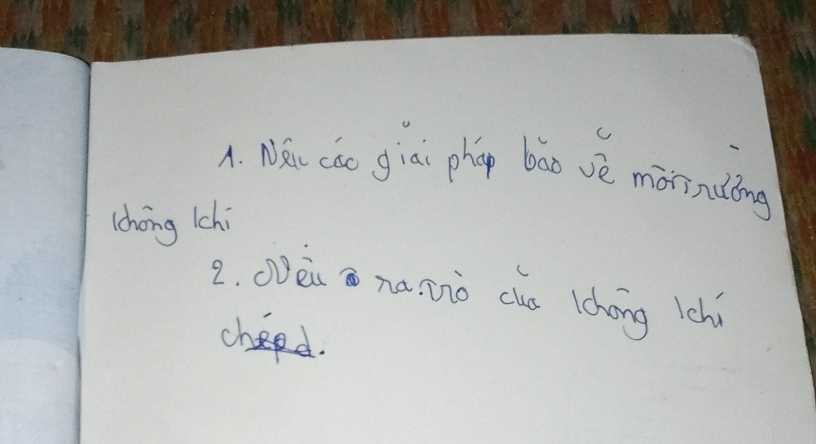 1. Nêu các giải pháp bảo vẽ môi trường
không khí
2. Nêu ra trò của không khí
chép.